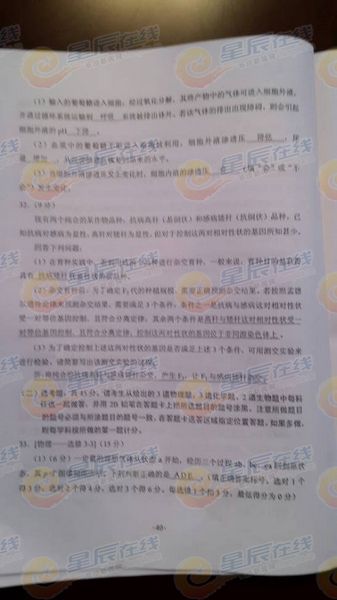 (1) 输入的葡萄糖进入细胞，经过氧化分解，其终产物中的气体可进入细胞外液，
并通过循环系统运输到 呼吸 系统被排出体外。若该气体的排出出现障碍，则会引起
细胞外液的 pH 下降 。
(2) 血浆中的葡萄糖不断进入细胞被利用，细胞外液渗透压 降低 ，尿
量 增加
(3) 当细胞外液渗透压发生变化时，细胞内液的渗透压 会 (填“会”或“不
会”)发生变化。
32. (9分)
现有两个纯合的某作物品种：抗病高秆（易倒伏）和感病矮秆（抗倒伏）品种，已
知抗病对感病为显性，高秆对矮秆为显性，但对于控制这两对相对性状的基因所知甚少。
回答下列问题：
(1) 在育种实践中，若利用这两个品种进行杂交育种，一般来说，育种目的是获得
具有 抗病矮秆
(2) 杂交育种前，为了确定F₂代的种植规模，需要正确预测杂交结果，若按照孟德
尔遗传定律来预测杂交结果，需要满足3个条件：条件之一是抗病与感病这对相对性状
受一对等位基因控制，且符合分离定律；其余两个条件是 高秆与矮秆这对相对性状受一
对等位基因控制，且符合分离定律；控制这两对相对性状的基因位于非同源染色体上 。
(3) 为了确定控制上述这两对性状的基因是否满足上述3个条件，可用测交实验来
进行检验，请简要写出该测交实验的过程。
(二) 选考题：共45分。请考生从给出的3道物理题、3道化学题、2道生物题中每科
任选一题做答，并用2B铅笔在答题卡上把所选题目的题号涂黑。注意所做题目
的题号必须与所涂题目的题号一致，在答题卡选答区域指定位置答题。如果多做，
则每学科按所做的第一题计分。
33. [物理——选修3-3] (15分)
(1) (6分) 一定量的理想气体从状态 a 开始，经历三个过程 ab、bc、ca 回到原状
态，其 下列判断正确的是 ADE 。(填正确答案标号，选对1个
得3分，选对2个得4分，选对3个得6分，每选错1个扣3分，最低得分为0分)
星辰在线